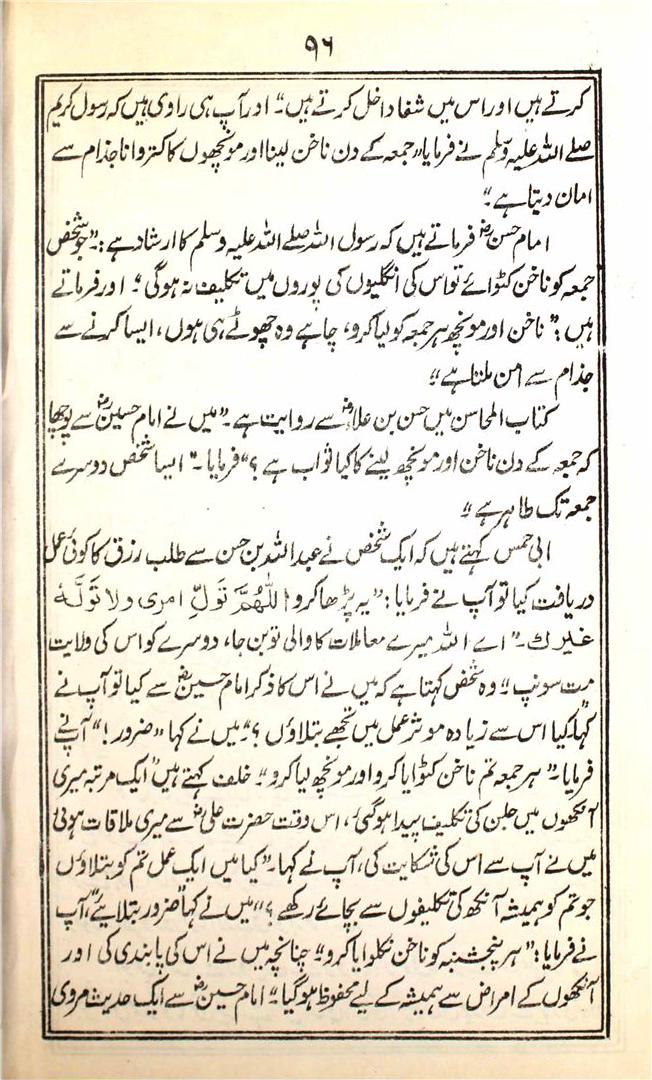 ۹۶
کرتے ہیں اور اس میں شفا داخل کرتے ہیں۔" اور آپ ہی راوی ہیں کہ رسول کریم
صلے اللہ علیہ وسلم نے فرمایا "جمعہ کے دن ناخن لینا اور مونچھوں کا کتروانا جذام سے
امان دیتا ہے۔"
امام حسنؓ فرماتے ہیں کہ رسول اللہ صلے اللہ علیہ وسلم کا ارشاد ہے :۔"جو شخص
جمعہ کو ناخن کٹوائے تو اس کی انگلیوں کی پوروں میں تکلیف نہ ہوگی"۔ اور فرماتے
ہیں :" ناخن اور مونچھ ہر جمعہ کو لیا کرو، چاہے وہ چھوٹے ہی ہوں، ایسا کرنے سے
جذام سے امن ملتا ہے"
کتاب المحاسن میں حسن بن علاؓ سے روایت ہے۔"میں نے امام حسینؓ سے پوچھا
کہ جمعہ کے دن ناخن اور مونچھ لینے کا کیا ثواب ہے ؟" فرمایا۔" ایسا شخص دوسرے
جمعہ تک طاہر ہے"
ابی حمس کہتے ہیں کہ ایک شخص نے عبداللہ بن حسن سے طلب رزق کا کوئی عمل
دریافت کیا تو آپ نے فرمایا :" یہ پڑھا کرو اَللّٰهُمَّ تَوَلِّ امری ولا تَوَلَّهٗ
غیرك۔" اے اللہ میرے معاملات کا والی تو بن جا، دوسرے کو اس کی ولایت
مت سونپ"۔ وہ شخص کہتا ہے کہ میں نے اس کا ذکر امام حسینؓ سے کیا تو آپ نے
کہا۔کیا اس سے زیادہ موثر عمل میں تجھے بتلاؤں ؟" میں نے کہا "ضرور!" آپنے
فرمایا۔" ہر جمعہ تم ناخن کٹوایا کرو اور مونچھ لیا کرو"۔ خلف کہتے ہیں" ایک مرتبہ میری
آنکھوں میں جلن کی تکلیف پیدا ہوگئی، اس وقت حضرت علیؓ سے میری ملاقات ہوئی
میں نے آپ سے اس کی شکایت کی، آپ نے کہا۔"کیا میں ایک عمل تم کو بتلاؤں
جو تم کو ہمیشہ آنکھ کی تکلیفوں سے بچائے رکھے ؟" میں نے کہا "ضرور بتلایئے"، آپ
نے فرمایا :" ہر پنجشنبہ کو ناخن نکلوایا کرو"۔ چنانچہ میں نے اس کی پابندی کی اور
آنکھوں کے امراض سے ہمیشہ کے لیے محفوظ ہوگیا"۔ امام حسینؓ سے ایک حدیث مروی